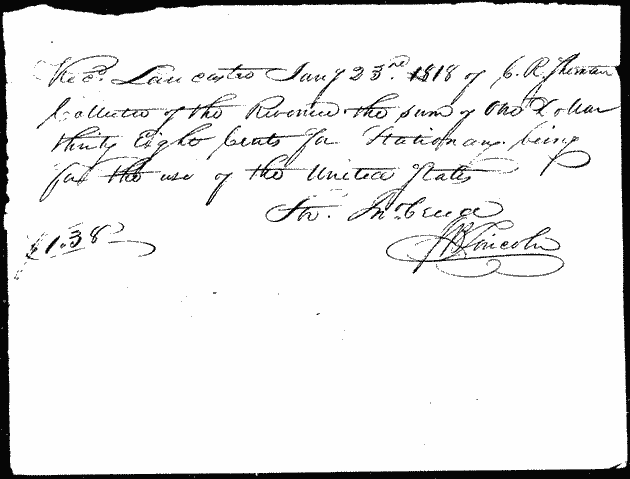 Rec^d. Lancaster Jany 23^rd. 1818 of C. R. Sherman
Collector of the Revenue the sum of One Dollar
thirty Eight Cents for Stationary being
for the use of the United States
for Jno Creed
$1.38 J B Lincoln